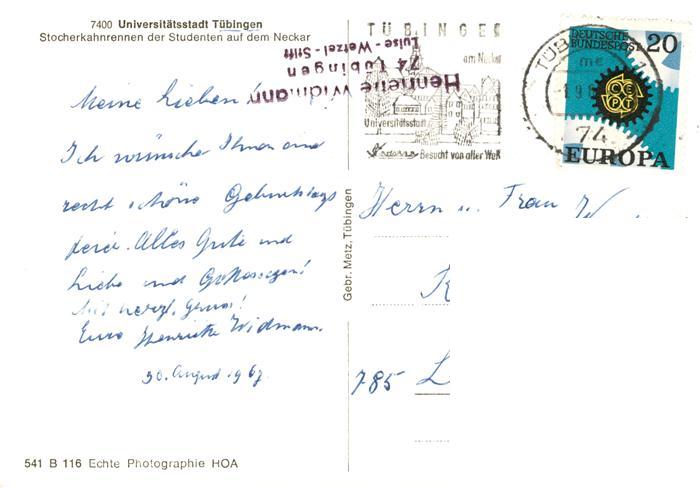 7400 Universitätsstadt Tübingen
Stocherkahnrennen der Studenten auf dem Neckar
Henriette Widmann
74 Tübingen
Luise-Wetzel-Stift
TÜBINGEN
am Neckar
Universitätsstadt
Besucht von aller Welt
TÜB
74
DEUTSCHE
BUNDESPOST 20
CEPT
EUROPA
Meine Lieben!
Ich wünsche Ihnen eine
recht schöne Geburtstags
feier. Alles Gute und
Liebe und Gottessegen!
Mit herzl. Gruss!
Eure Henriette Widmann.
30. August 1967
Gebr. Metz, Tübingen
Herrn u. Frau W
K
785 L
541 B 116 Echte Photographie HOA